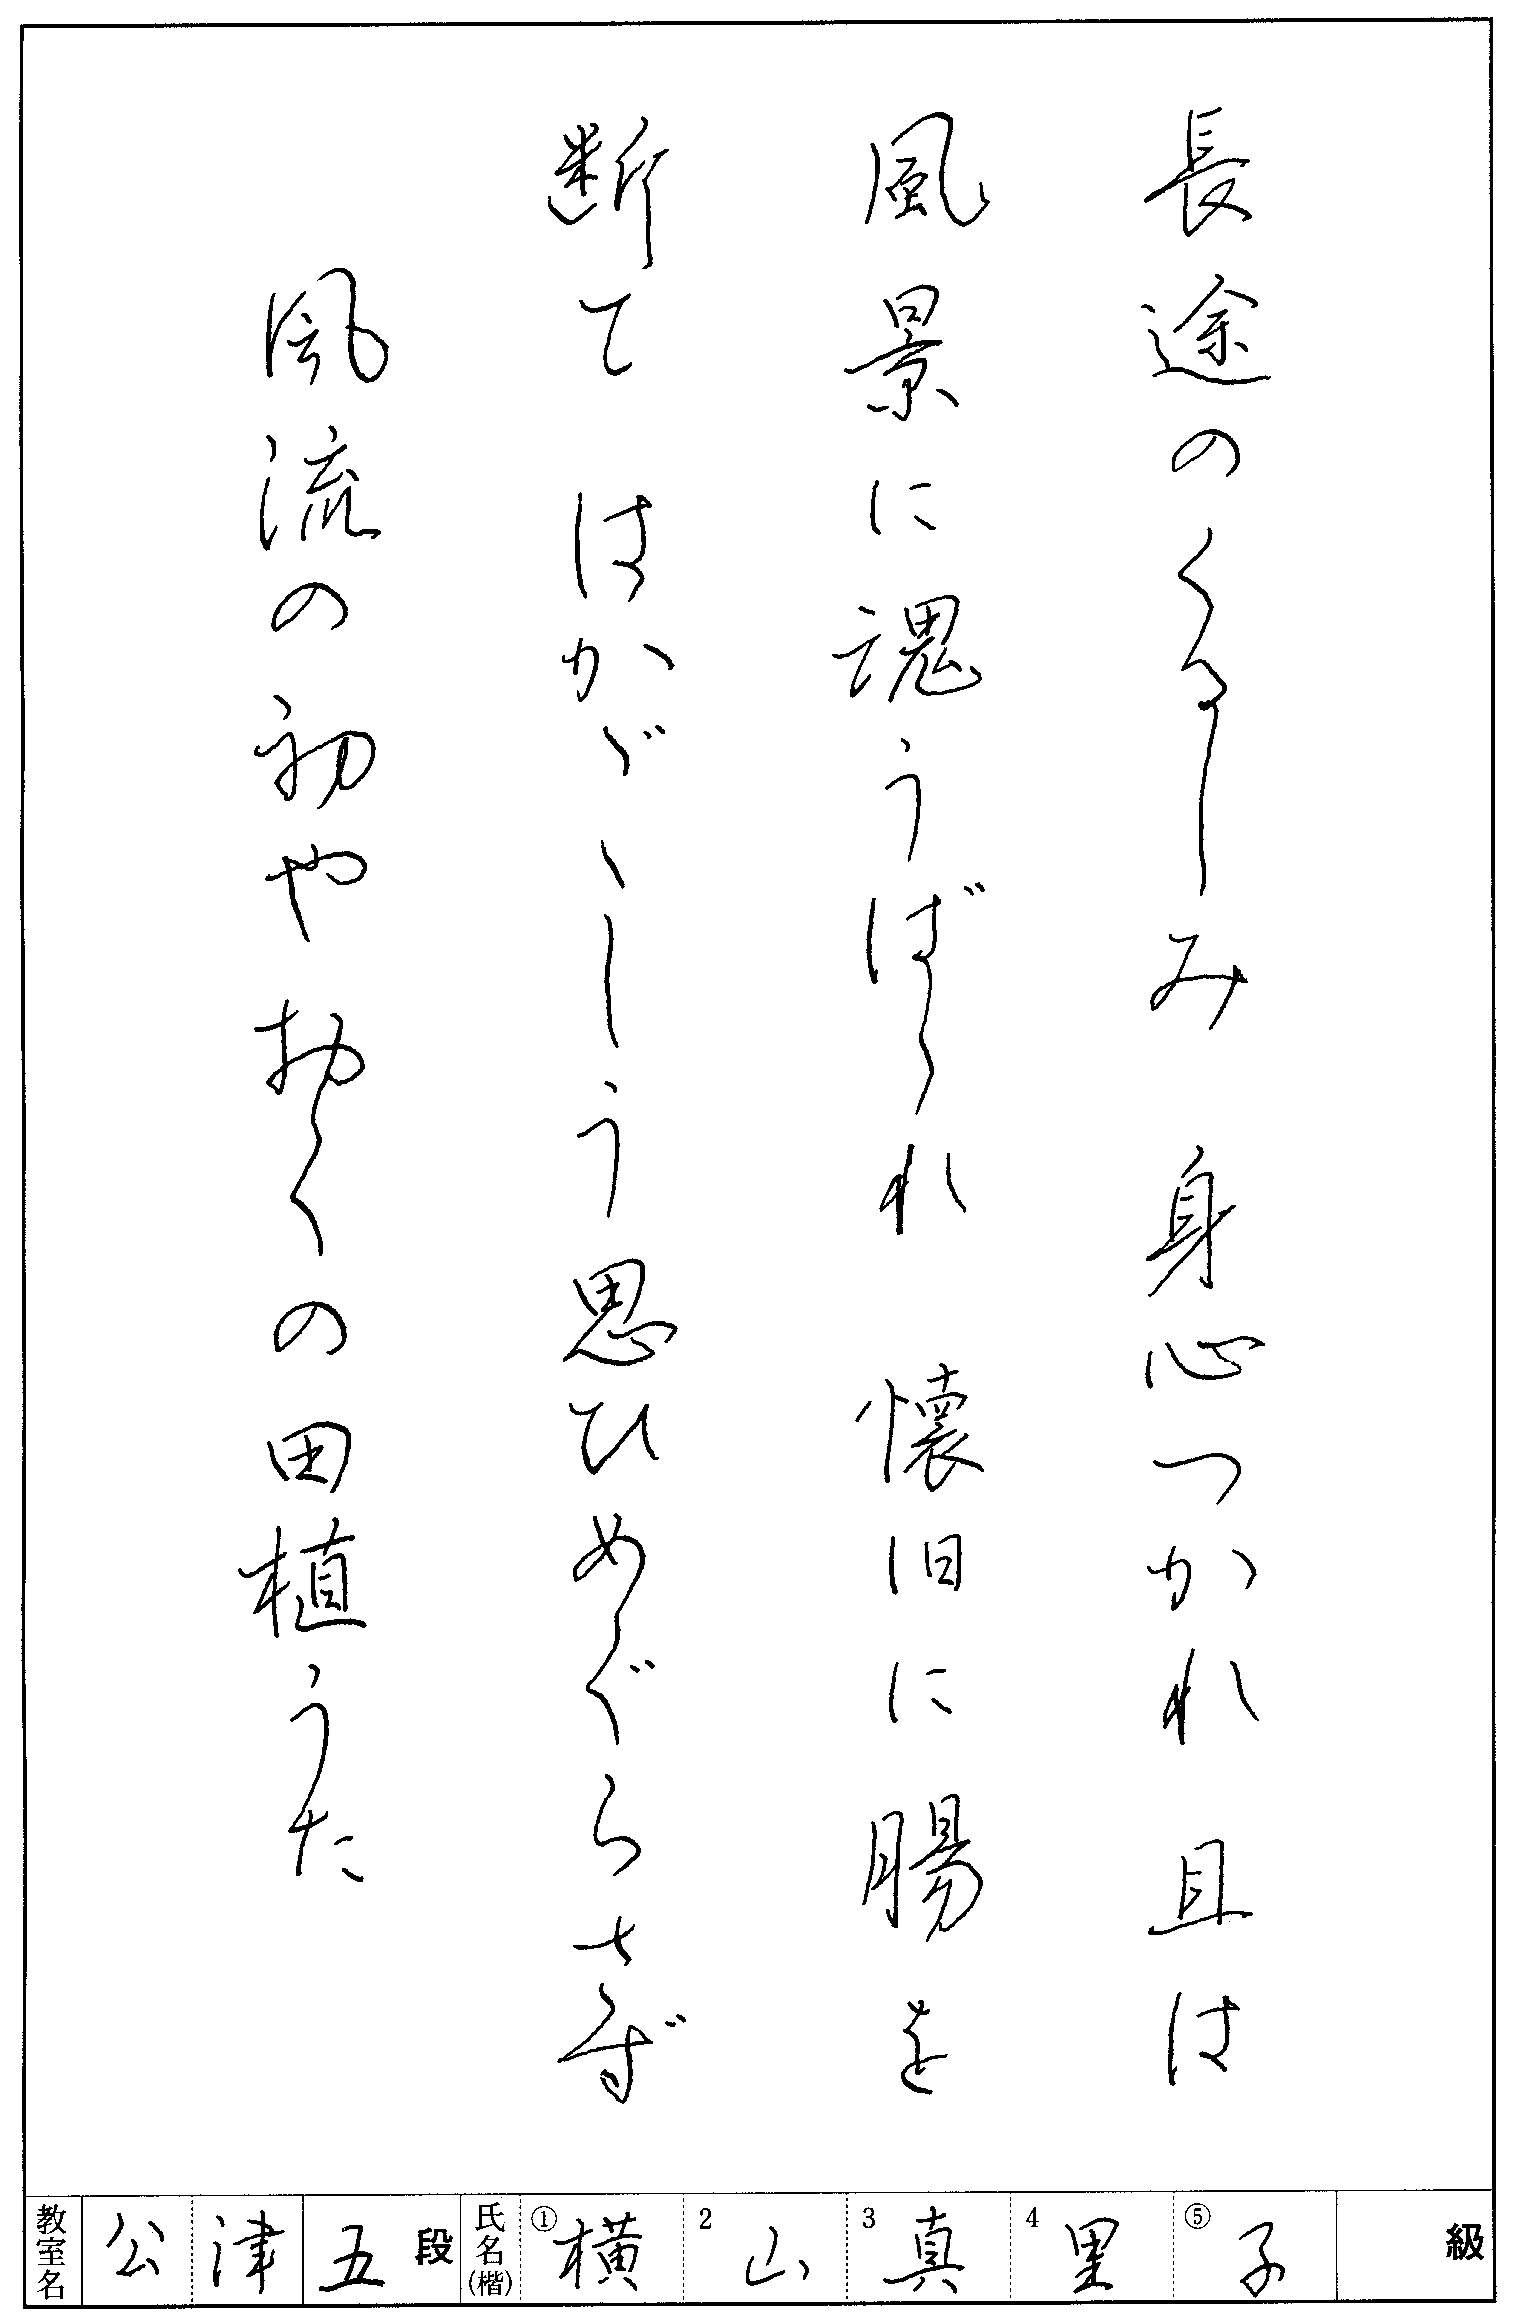 長途のくるしみ 身心つかれ 且は
風景に魂うばゝれ 懐旧に腸を
断て はかゞゝしう思ひめぐらさず
風流の初やおくの田植うた
教室名 公津 五 段 氏名(楷) ①横 2山 3真 4里 ⑤子 級